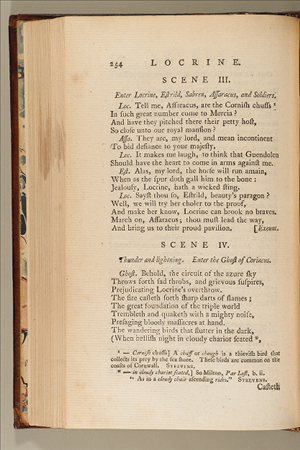 254 LOCRINE.
SCENE III.
Enter Locrine, Estrild, Sabren, Assaracus, and Soldiers.
Loc. Tell me, Assaracus, are the Cornish chuffs *
In such great number come to Mercia?
And have they pitched there their petty host,
So close unto our royal mansion?
Assa. They are, my lord, and mean incontinent
To bid defiance to your majesty.
Loc. It makes me laugh, to think that Guendolen
Should have the heart to come in arms against me.
Est. Alas, my lord, the horse will run amain,
When as the spur doth gall him to the bone:
Jealousy, Locrine, hath a wicked sting.
Loc. Sayst thou so, Estrild, beauty's paragon?
Well, we will try her choler to the proof,
And make her know, Locrine can brook no braves.
March on, Assaracus; thou must lead the way,
And bring us to their proud pavilion. [Exeunt.
SCENE IV.
Thunder and lightning. Enter the Ghost of Corineus.
Ghost. Behold, the circuit of the azure sky
Throws forth sad throbs, and grievous suspires,
Prejudicating Locrine's overthrow.
The fire casteth forth sharp darts of flames;
The great foundation of the triple world
Trembleth and quaketh with a mighty noise,
Presaging bloody massacres at hand.
The wandering birds that flutter in the dark,
(When hellish night in cloudy chariot seated *,
* — Cornish chuffs;] A chuff or chough is a thievish bird that
collects its prey by the sea shore. These birds are common on the
coasts of Cornwall. STEEVENS.
* — in cloudy chariot seated,] So Milton, Par Lost, b. ii.
"As in a cloudy chair ascending rides." STEEVENS.
Casteth